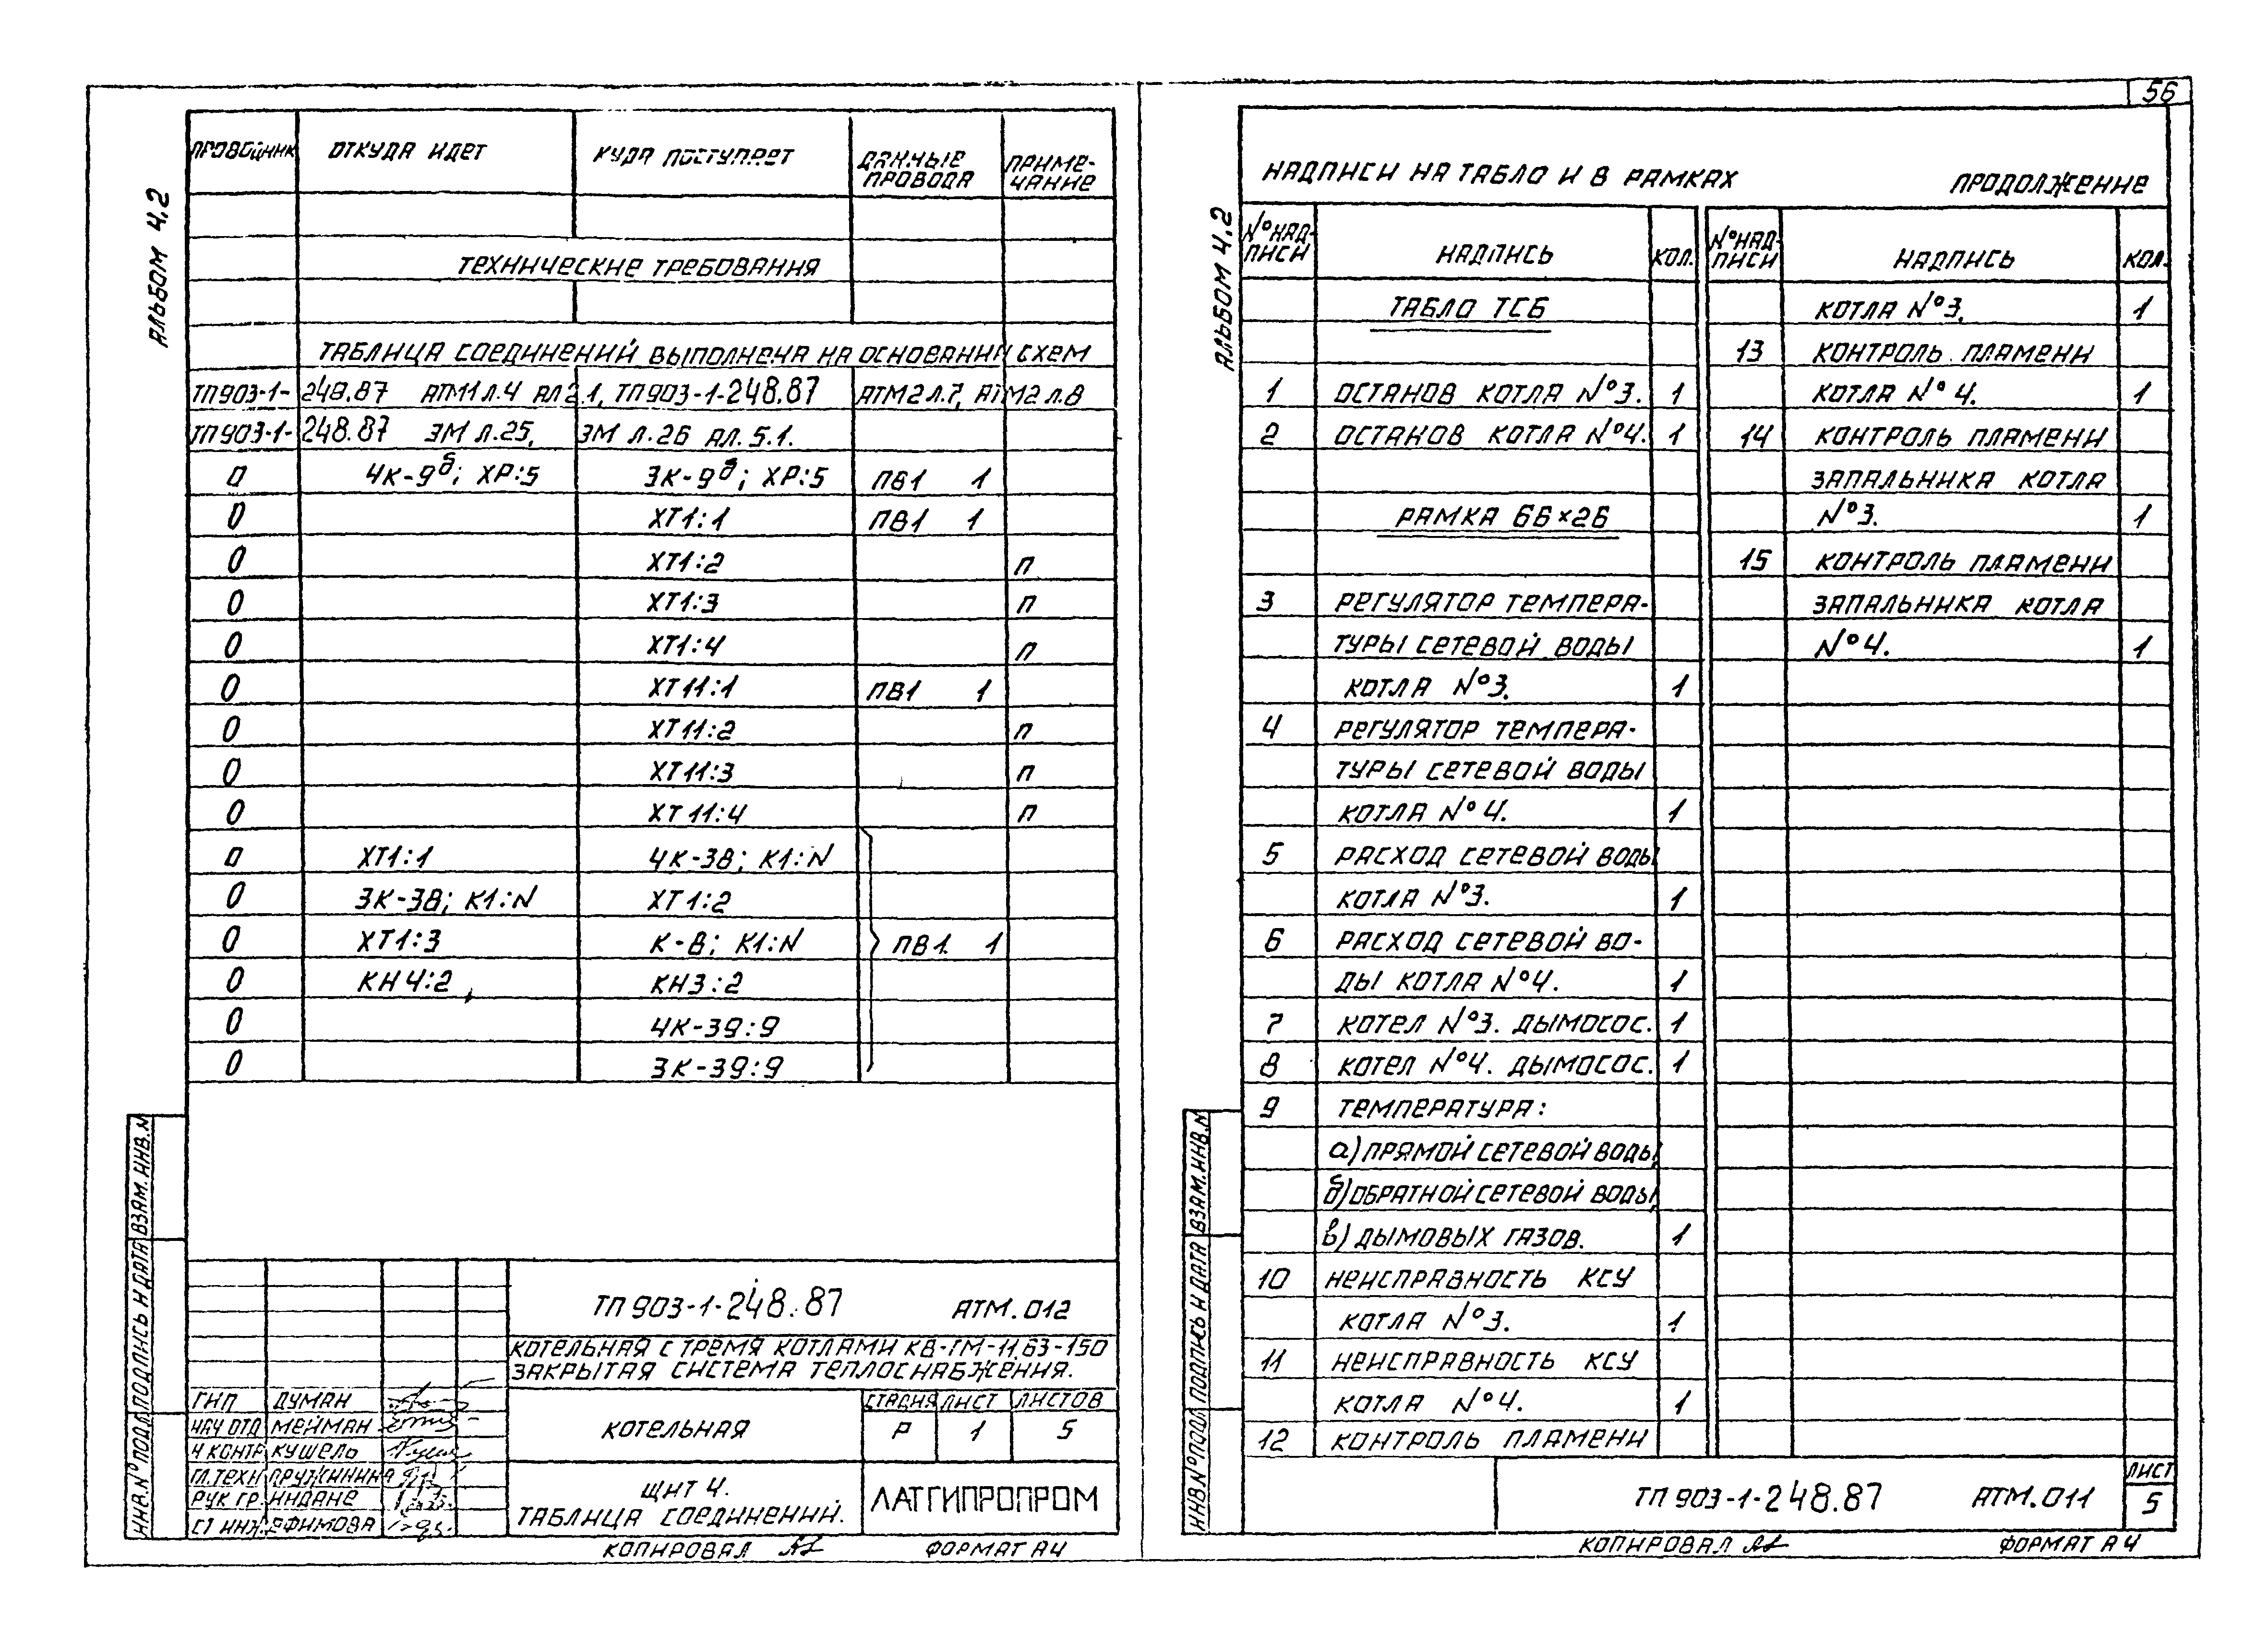 56
АЛЬБОМ 4.2
ПРОВОДНИК ОТКУДА ИДЕТ КУДА ПОСТУПАЕТ ДАННЫЕ ПРОВОДА ПРИМЕ-ЧАНИЕ
ТЕХНИЧЕСКИЕ ТРЕБОВАНИЯ
ТАБЛИЦА СОЕДИНЕНИЙ ВЫПОЛНЕНА НА ОСНОВАНИИ СХЕМ
ТП903-1-248.87 АТМ1 Л.4 АЛ 2.1, ТП903-1-248.87 АТМ2 Л.7, АТМ2 Л.8
ТП903-1-248.87 ЭМ Л.25, ЭМ Л.26 АЛ. 5.1.
0 4К-9б; ХР:5 3К-9б; ХР:5 ПВ1 1
0 ХТ1:1 ПВ1 1
0 ХТ1:2 П
0 ХТ1:3 П
0 ХТ1:4 П
0 ХТ11:1 ПВ1 1
0 ХТ11:2 П
0 ХТ11:3 П
0 ХТ11:4 П
0 ХТ1:1 4К-3В; К1:N
0 3К-3В; К1:N ХТ1:2
0 ХТ1:3 К-8; К1:N ПВ1. 1
0 КН4:2 КН3:2
0 4К-39:9
0 3К-39:9
ТП 903-1-248.87 АТМ.012
КОТЕЛЬНАЯ С ТРЕМЯ КОТЛАМИ КВ-ГМ-11,63-150
ЗАКРЫТАЯ СИСТЕМА ТЕПЛОСНАБЖЕНИЯ.
ГИП ДУМАН
НАЧ ОТД МЕЙМАН
Н КОНТР КУШЕЛЬ
ГЛ.ТЕХН ПРУЖИНИНА
РУК ГР. ИНДАНЕ
СТ ИНЖ. ЕФИМОВА
КОТЕЛЬНАЯ
СТАДИЯ ЛИСТ ЛИСТОВ
Р 1 5
ЩИТ 4.
ТАБЛИЦА СОЕДИНЕНИЙ.
ЛАТГИПРОПРОМ
ИНВ.N° ПОДЛ ПОДПИСЬ И ДАТА ВЗАМ.ИНВ.N
КОПИРОВАЛ ФОРМАТ А4
АЛЬБОМ 4.2
НАДПИСИ НА ТАБЛО И В РАМКАХ ПРОДОЛЖЕНИЕ
N° НАД-ПИСИ НАДПИСЬ КОЛ.
ТАБЛО ТСБ
1 ОСТАНОВ КОТЛА N°3. 1
2 ОСТАНОВ КОТЛА N°4. 1
РАМКА 66×26
3 РЕГУЛЯТОР ТЕМПЕРА-
ТУРЫ СЕТЕВОЙ ВОДЫ
КОТЛА N°3. 1
4 РЕГУЛЯТОР ТЕМПЕРА-
ТУРЫ СЕТЕВОЙ ВОДЫ
КОТЛА N°4. 1
5 РАСХОД СЕТЕВОЙ ВОДЫ
КОТЛА N°3. 1
6 РАСХОД СЕТЕВОЙ ВО-
ДЫ КОТЛА N°4. 1
7 КОТЕЛ N°3. ДЫМОСОС. 1
8 КОТЕЛ N°4. ДЫМОСОС. 1
9 ТЕМПЕРАТУРА:
а) ПРЯМОЙ СЕТЕВОЙ ВОДЫ,
б) ОБРАТНОЙ СЕТЕВОЙ ВОДЫ,
в) ДЫМОВЫХ ГАЗОВ. 1
10 НЕИСПРАВНОСТЬ КСУ
КОТЛА N°3. 1
11 НЕИСПРАВНОСТЬ КСУ
КОТЛА N°4. 1
12 КОНТРОЛЬ ПЛАМЕНИ
N° НАД-ПИСИ НАДПИСЬ КОЛ.
КОТЛА N°3. 1
13 КОНТРОЛЬ ПЛАМЕНИ
КОТЛА N°4. 1
14 КОНТРОЛЬ ПЛАМЕНИ
ЗАПАЛЬНИКА КОТЛА
N°3. 1
15 КОНТРОЛЬ ПЛАМЕНИ
ЗАПАЛЬНИКА КОТЛА
N°4. 1
ИНВ.N° ПОДЛ ПОДПИСЬ И ДАТА ВЗАМ.ИНВ.N
ТП 903-1-248.87 АТМ.011
ЛИСТ
5
КОПИРОВАЛ ФОРМАТ А4